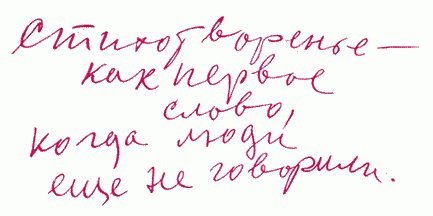 Стихотворенье —
как первое
слово,
когда люди
еще не говорили.